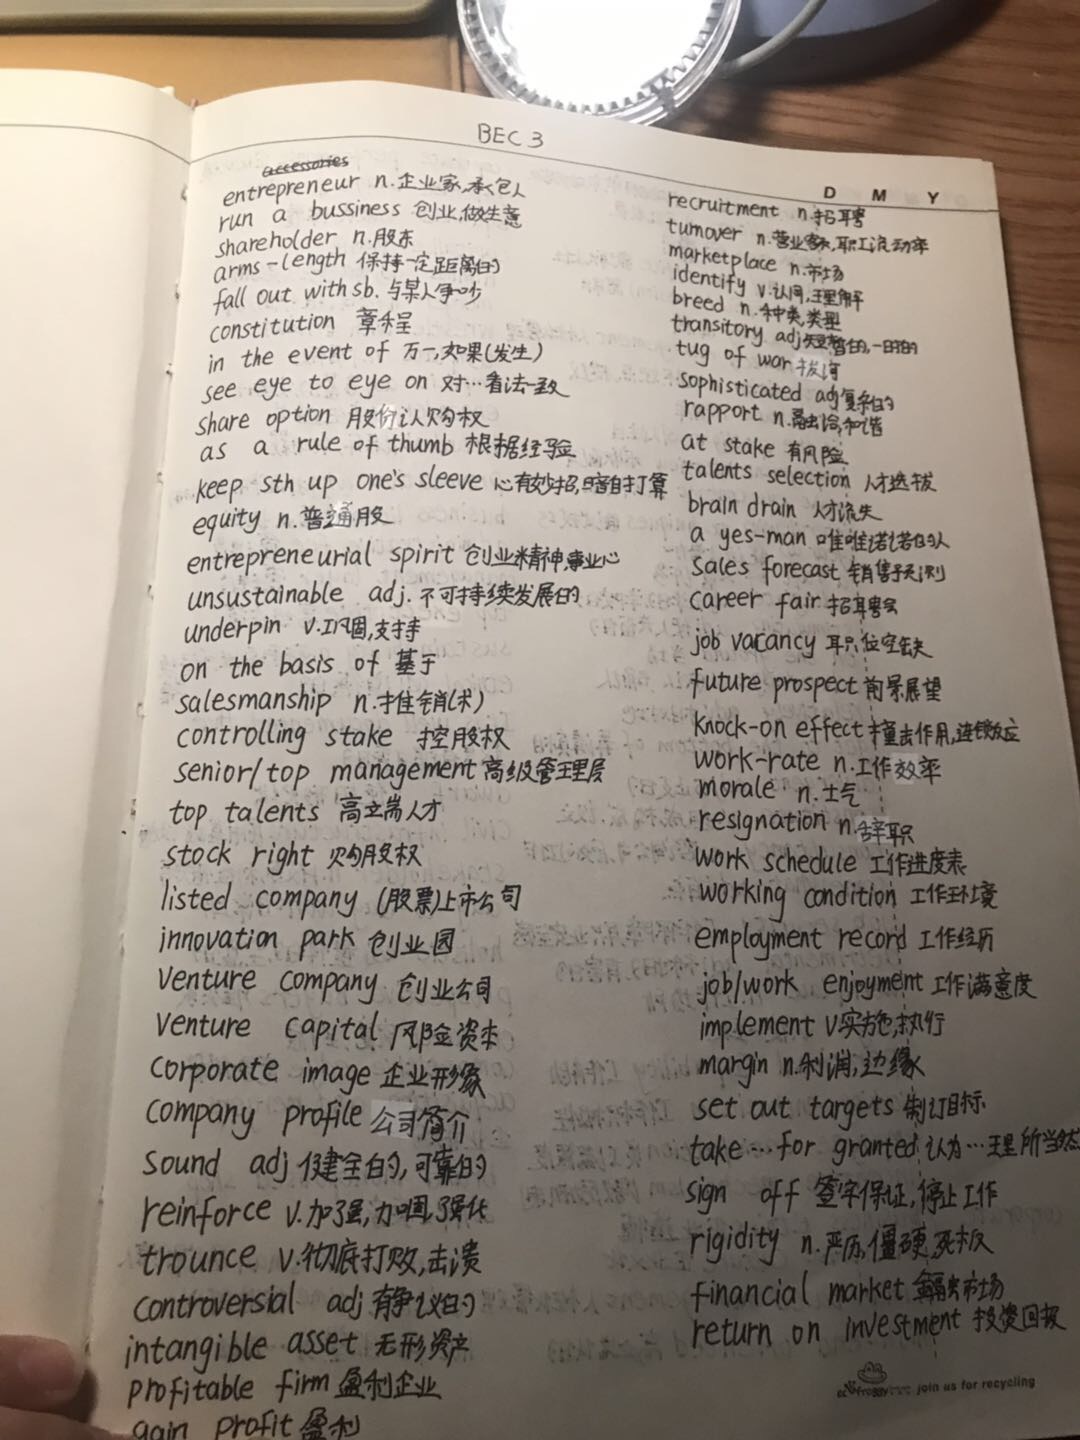 BEC 3
D M Y
accessories
entrepreneur n.企业家,承包人
run a bussiness 创业,做生意
shareholder n.股东
arms-length 保持一定距离的
fall out with sb. 与某人争吵
constitution 章程
in the event of 万一,如果(发生)
see eye to eye on 对…看法一致
share option 股份认购权
as a rule of thumb 根据经验
keep sth up one's sleeve 心有妙招,暗自打算
equity n.普通股
entrepreneurial spirit 创业精神,事业心
unsustainable adj.不可持续发展的
underpin v.巩固,支持
on the basis of 基于
salesmanship n.推销(术)
controlling stake 控股权
senior/top management 高级管理层
top talents 高端人才
stock right 购股权
listed company (股票)上市公司
innovation park 创业园
venture company 创业公司
venture capital 风险资本
corporate image 企业形象
company profile 公司简介
sound adj 健全的,可靠的
reinforce v.加强,加固,强化
trounce v.彻底打败,击溃
controversial adj 有争议的
intangible asset 无形资产
profitable firm 盈利企业
gain profit 盈利
recruitment n.招聘
turnover n.营业额,职工流动率
marketplace n.市场
identify v.认同,理解
breed n.种类,类型
transitory adj 短暂的,一时的
tug of war 拔河
sophisticated adj 复杂的
rapport n.融洽,和谐
at stake 有风险
talents selection 人才选拔
brain drain 人才流失
a yes-man 唯唯诺诺的人
sales forecast 销售预测
career fair 招聘会
job vacancy 职位空缺
future prospect 前景展望
knock-on effect 撞击作用,连锁效应
work-rate n.工作效率
morale n.士气
resignation n.辞职
work schedule 工作进度表
working condition 工作环境
employment record 工作经历
job/work enjoyment 工作满意度
implement v.实施,执行
margin n.利润,边缘
set out targets 制订目标
take…for granted 认为…理所当然
sign off 签字保证,停止工作
rigidity n.严厉,僵硬,死板
financial market 金融市场
return on investment 投资回报
join us for recycling